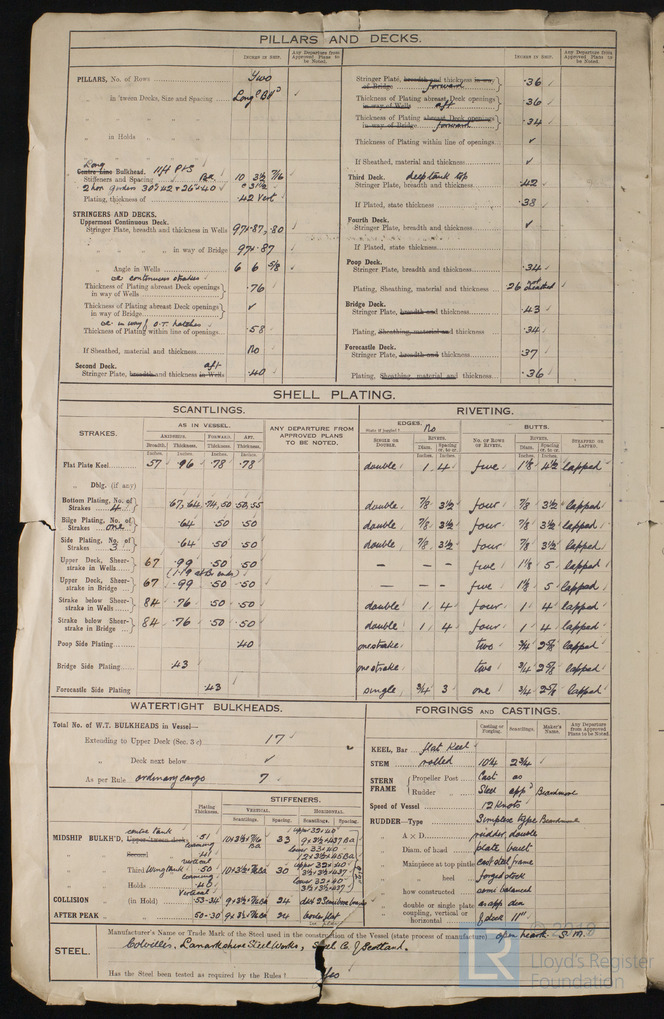 PILLARS AND DECKS.
INCHES IN SHIP.
Any Departure from Approved Plans to be Noted.
PILLARS, No. of Rows Two
„ in 'tween Decks, Size and Spacing Long Bd
„ in Holds „
Long
Centre Line Bulkhead.
Stiffeners and Spacing 10 3½ 7/16
2 hor girders 30×42 + 26×40
Plating, thickness of .42 Vert
STRINGERS AND DECKS.
Uppermost Continuous Deck.
Stringer Plate, breadth and thickness in Wells 97×.87,.80
„ „ „ in way of Bridge 97×.87
„ Angle in Wells 6 6 5/8
Thickness of Plating abreast Deck openings in way of Wells .76
Thickness of Plating abreast Deck openings in way of Bridge ✓
or in way of O.T. hatches
Thickness of Plating within line of openings .58
If Sheathed, material and thickness No
Second Deck. aft
Stringer Plate, breadth and thickness in Wells .40
INCHES IN SHIP.
Any Departure from Approved Plans to be Noted.
Stringer Plate, breadth and thickness in way of Bridge forward .36
Thickness of Plating abreast Deck openings in way of Wells aft .36
Thickness of Plating abreast Deck openings in way of Bridge forward .34
Thickness of Plating within line of openings ✓
If Sheathed, material and thickness ✓
Third Deck. deep tank top
Stringer Plate, breadth and thickness .42
If Plated, state thickness .38
Fourth Deck.
Stringer Plate, breadth and thickness ✓
If Plated, state thickness
Poop Deck.
Stringer Plate, breadth and thickness .34
Plating, Sheathing, material and thickness .26 sheathed
Bridge Deck.
Stringer Plate, breadth and thickness .43
Plating, Sheathing, material and thickness .34
Forecastle Deck.
Stringer Plate, breadth and thickness .37
Plating, Sheathing, material and thickness .36
SHELL PLATING.
SCANTLINGS.
RIVETING.
STRAKES.
AS IN VESSEL.
AMIDSHIPS. FORWARD. AFT.
Breadth. Thickness. Thickness. Thickness.
ANY DEPARTURE FROM APPROVED PLANS TO BE NOTED.
EDGES. No
State if joggled?
SINGLE OR DOUBLE.
RIVETS.
Diam. Spacing cr. to cr.
BUTTS.
No. OF ROWS OF RIVETS.
RIVETS.
Diam. Spacing cr. to cr.
STRAPPED OR LAPPED.
Inches. Inches. Inches. Inches. Inches. Inches. Inches. Inches.
Flat Plate Keel 57 .96 .78 .78 double 1 4 five 1⅛ 4½ lapped
„ Dblg. (if any)
Bottom Plating, No. of Strakes 4 .67,.64 .74,.50 .50,.55 double 7/8 3½ four 7/8 3½ lapped
Bilge Plating, No. of Strakes one .64 .50 .50 double 7/8 3½ four 7/8 3½ lapped
Side Plating, No. of Strakes 3 .64 .50 .50 double 7/8 3½ four 7/8 3½ lapped
Upper Deck, Sheerstrake in Wells 67 .99 .50 .50 – – – five 1⅛ 5 lapped
(1.19 at Br ends)
Upper Deck, Sheerstrake in Bridge 67 .99 .50 .50 five 1⅛ 5 lapped
Strake below Sheerstrake in Wells 84 .76 .50 .50 double 1 4 four 1 4 lapped
Strake below Sheerstrake in Bridge 84 .76 .50 .50 double 1 4 four 1 4 lapped
Poop Side Plating .40 one strake two ¾ 2⅝ lapped
Bridge Side Plating .43 one strake two ¾ 2⅝ lapped
Forecastle Side Plating .43 single ¾ 3 one ¾ 2⅝ lapped
WATERTIGHT BULKHEADS.
Total No. of W.T. BULKHEADS in Vessel—
Extending to Upper Deck (Sec. 3 c) 17
„ Deck next below ✓
As per Rule ordinary cargo 7
Plating Thickness.
STIFFENERS.
VERTICAL. HORIZONTAL.
Scantlings. Spacing. Scantlings. Spacing.
centre tank
MIDSHIP BULKH'D, Upper 'tween decks .51 33
Second .41
Third Wing tank .50 30
Holds .40
COLLISION (in Hold) .53-.34 24
AFTER PEAK .50-.30 24
FORGINGS AND CASTINGS.
Casting or Forging. Scantlings. Maker's Name. Any Departure from Approved Plans to be Noted.
KEEL, Bar flat Keel
STEM rolled 10¼ 2¾
STERN FRAME
Propeller Post Cast as
Rudder „ Steel appd Beardmore
Speed of Vessel 12 Knots
RUDDER—Type Simplex type Beardmore
„ A × D rudder, double
„ Diam. of head plate built
Mainpiece at top pintle cast steel frame
„ heel forged stock
„ how constructed semi balanced
„ double or single plate as app
„ coupling, vertical or horizontal
STEEL.
Manufacturer's Name or Trade Mark of the Steel used in the construction of the Vessel (state process of manufacture) open hearth. S.M.
Colvilles. Lanarkshire Steel Works, Steel Co. of Scotland.
Has the Steel been tested as required by the Rules? Yes
LR
Lloyd's Register
Foundation